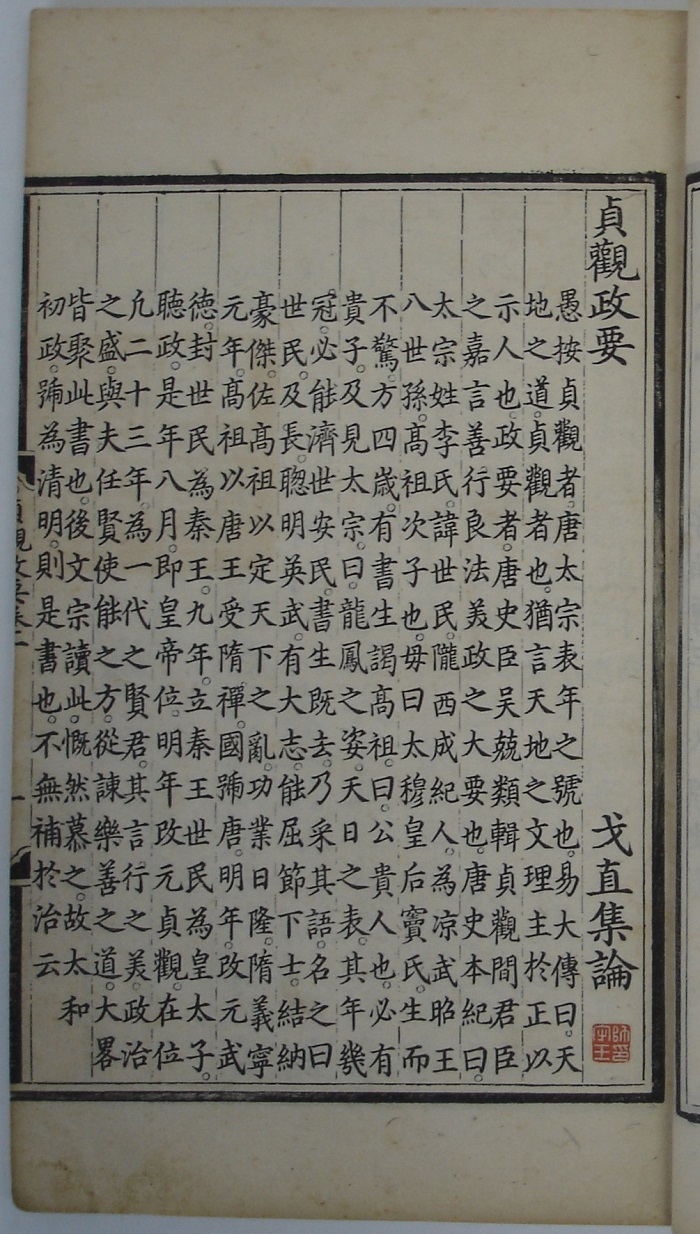 貞觀政要 戈直集論
愚按貞觀者。唐太宗表年之號也。易大傳曰。天
地之道。貞觀者也。猶言天地之文理主於正以
示人也。政要者。唐史臣吳兢類輯貞觀間君臣
之嘉言善行良法美政之大要也。唐史本紀曰。
太宗姓李氏。諱世民。隴西成紀人。為凉武昭王
八世孫。高祖次子也。母曰太穆皇后竇氏。生而
不驚。方四歲。有書生謁高祖。曰。公貴人也。必有
貴子。及見太宗。曰。龍鳳之姿。天日之表。其年幾
冠。必能濟世安民。書生既去。乃采其語。名之曰
世民。及長。聰明英武。有大志。能屈節下士。結納
豪傑。佐高祖以定天下之亂。功業日隆。隋義寧
元年。高祖以唐王受隋禪。國號唐。明年。改元武
德。封世民為秦王。九年。立秦王世民為皇太子。
聽政。是年八月。即皇帝位。明年。改元貞觀。在位
凢二十三年。為一代之賢君。其言行之美。政治
之盛。與夫任賢使能之方。從諫樂善之道。大畧
皆聚此書也。後文宗讀此。慨然慕之。故太和
初政。號為清明。則是書也。不無補於治云